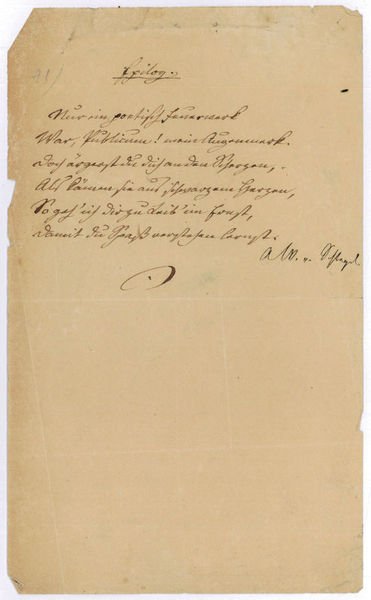 Epilog.
Nur ein poetisch Feuerwerk
War, Publicum! mein Augenmerk.
Doch ärgerst du dich an den Scherzen,
Als kämen sie aus schwarzem Herzen,
So geh' ich dir zu Leib' im Ernst,
Damit du Spaß verstehen lernst.
A. W. v. Schlegel